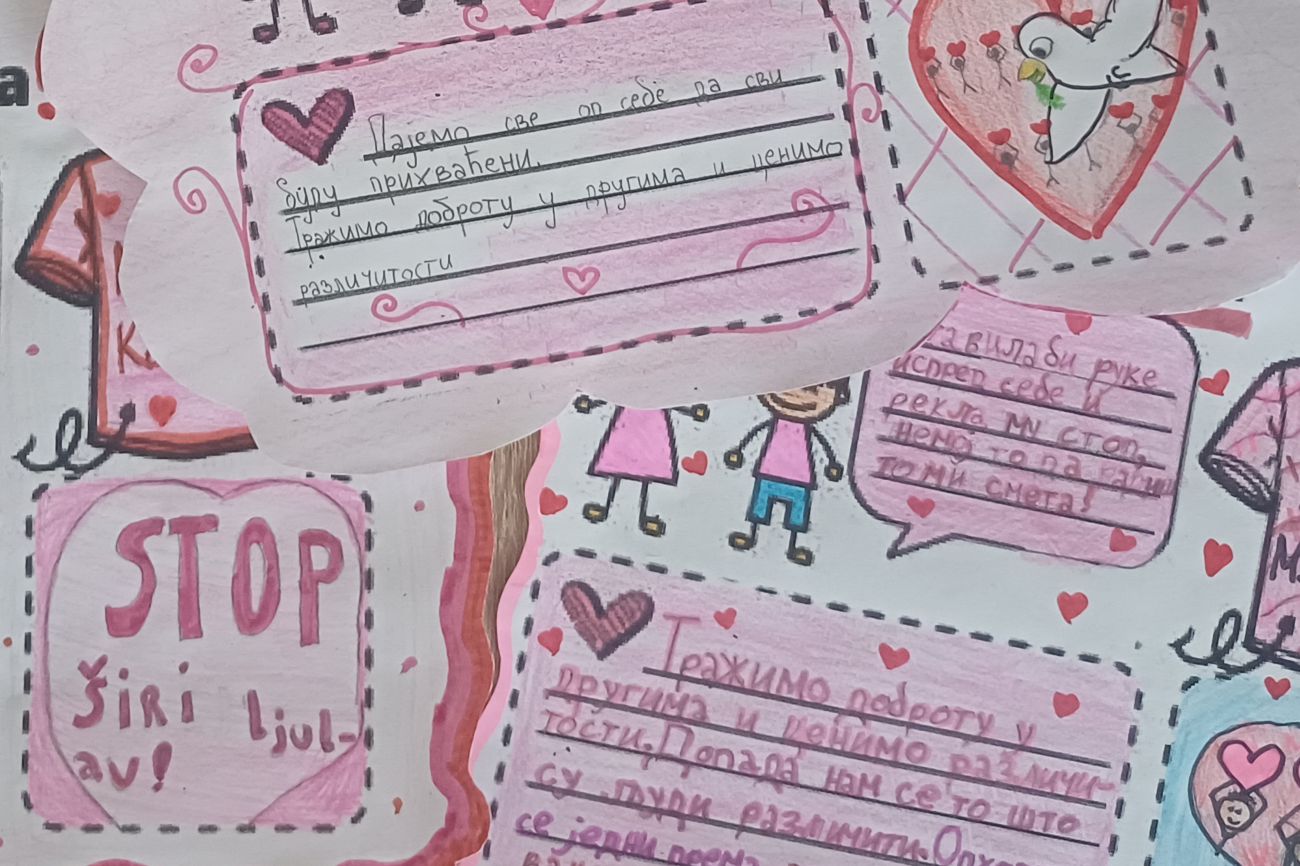 Дајемо све од себе да сви
буду прихваћени.
Тражимо доброту у другима и ценимо
различитости
ставила би руке
испред себе и
рекла му стоп,
немој то да радиш
то ми смета!
STOP
ŠiRi ljub-
av!
Тражимо доброту у
другима и ценимо различи-
тости. Допада нам се то што
су људи различити.
се једни према